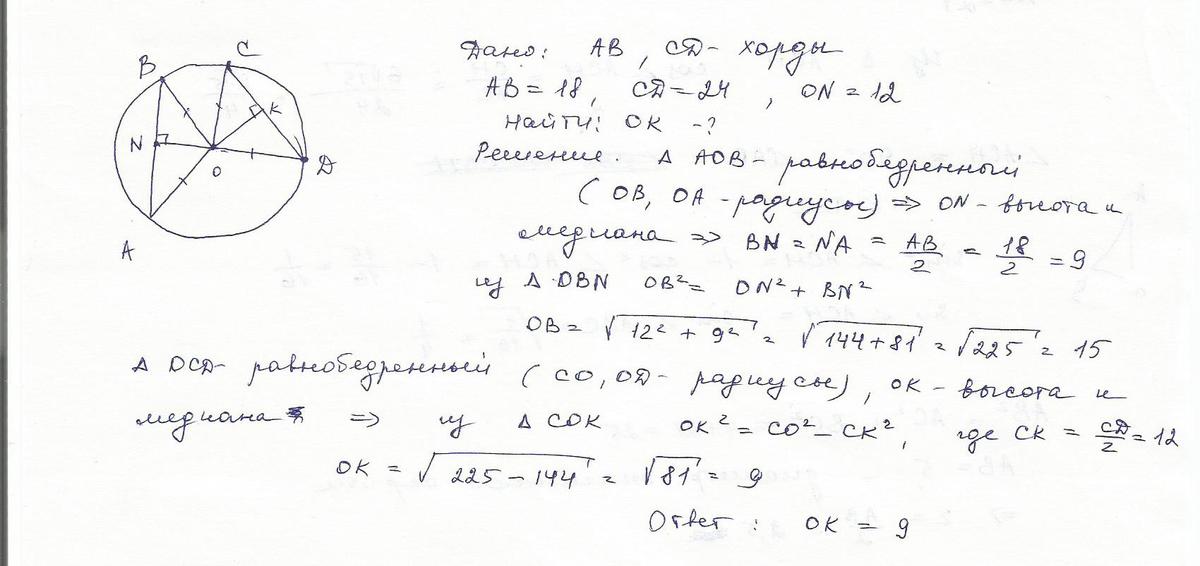 Дано: AB, CD - хорды
AB = 18, CD = 24, ON = 12
Найти: OK - ?
Решение. Δ AOB - равнобедренный
(OB, OA - радиусы) ⇒ ON - высота и
медиана ⇒ BN = NA = AB/2 = 18/2 = 9
из Δ OBN OB² = ON² + BN²
OB = √(12² + 9²) = √(144 + 81) = √225 = 15
Δ OCD - равнобедренный (CO, OD - радиусы), OK - высота и
медиана ⇒ из Δ COK OK² = CO² - CK², где CK = CD/2 = 12
OK = √(225 - 144) = √81 = 9
Ответ: OK = 9
B
C
N
K
O
D
A